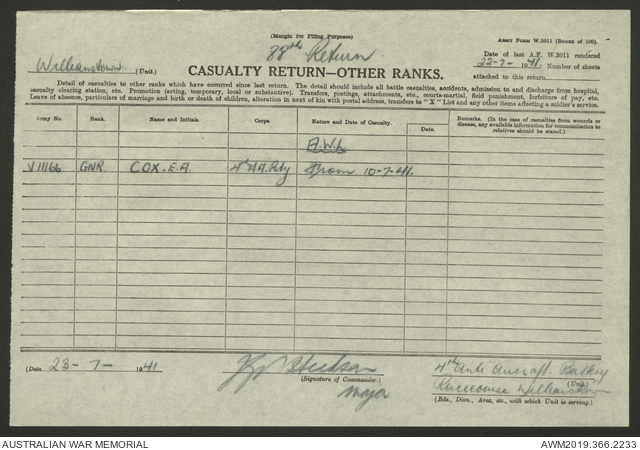 (Margin for Filing Purposes)
88th Return
ARMY FORM W.3011 (BOOKS OF 100).
Williamstown (Unit.)
CASUALTY RETURN—OTHER RANKS.
Date of last A.F. W.3011 rendered
22-7-1941.
Number of sheets
attached to this return
Detail of casualties to other ranks which have occurred since last return. The detail should include all battle casualties, accidents, admission to and discharge from hospital,
casualty clearing station, etc. Promotion (acting, temporary, local or substantive). Transfers, postings, attachments, etc., courts-martial, field punishment, forfeiture of pay, etc.
Leave of absence, particulars of marriage and birth or death of children, alteration in next of kin with postal address, transfers to "X" List and any other items affecting a soldier's service.
Army No. Rank. Name and Initials. Corps. Nature and Date of Casualty. Date. Remarks. (In the case of casualties from wounds or
disease, any available information for communication to
relatives should be stated.)
A.W.L.
V11166 GNR. COX. E.A. 4th AA. Bty from 10-7-41.
(Date 23-7-1941
(Signature of Commander.)
Major
4th Anti Aircraft. Battery
Racecourse Williamstown
(Unit.)
(Bde., Divn., Area, etc., with which Unit is serving.)
AUSTRALIAN WAR MEMORIAL
AWM2019.366.2233